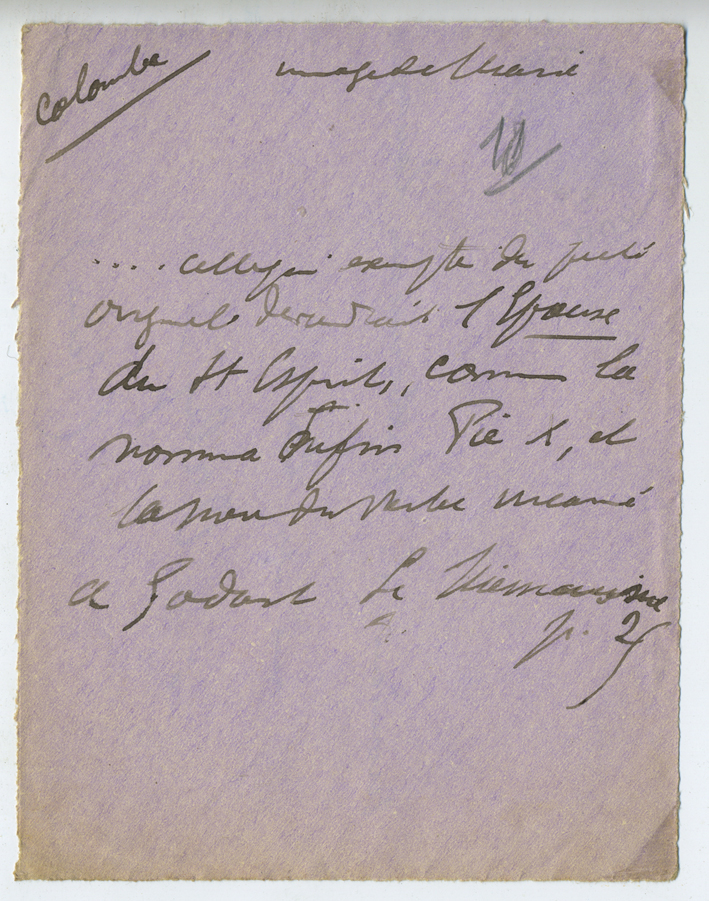 Colombe
image de Marie
10
.... celle qui exempte du péché
originel deviendrait l'Epouse
du St Esprit, comme la
nomma Pie X, et
la mère du Verbe incarné
A Godard Le
p. 25